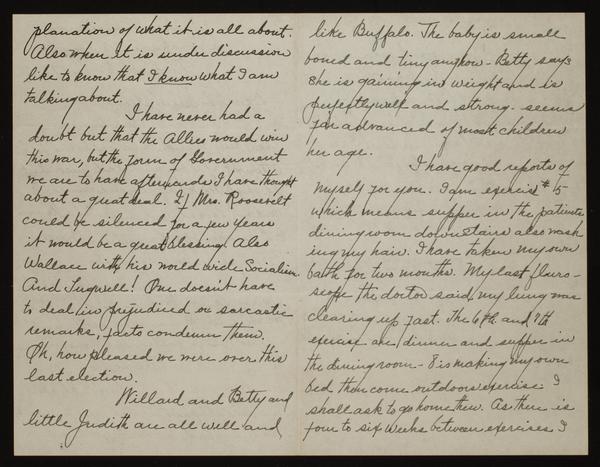 planation of what it is all about.
Also when it is under discussion
like to know that I know what I am
talking about.
I have never had a
doubt but that the Allies would win
this war, but the form of Government
we are to have afterwards I have thought
about a great deal. If Mrs. Roosevelt
could be silenced for a few years
it would be a great blessing. Also
Wallace with his world wide Socialism.
And Tugwell! One doesn't have
to deal in prejudiced or sarcastic
remarks, facts condemn them.
Oh, how pleased we were over this
last election.
Willard and Betty and
little Judith are all well and
like Buffalo. The baby is small
boned and tiny anyhow - Betty says
she is gaining in weight and is
perfectly well and strong - seems
far advanced of most children
her age.
I have good reports of
myself for you. I am exercise #5
which means supper in the patients
dining room downstairs also wash
ing my hair. I have taken my own
bath for two months. My last fluro-
scope the doctor said my lung was
clearing up fast. The 6th and 7th
exercise are dinner and supper in
the dining room - 8 is making my own
bed then come outdoors exercise. I
shall ask to go home then. As there is
four to six weeks between exercises I